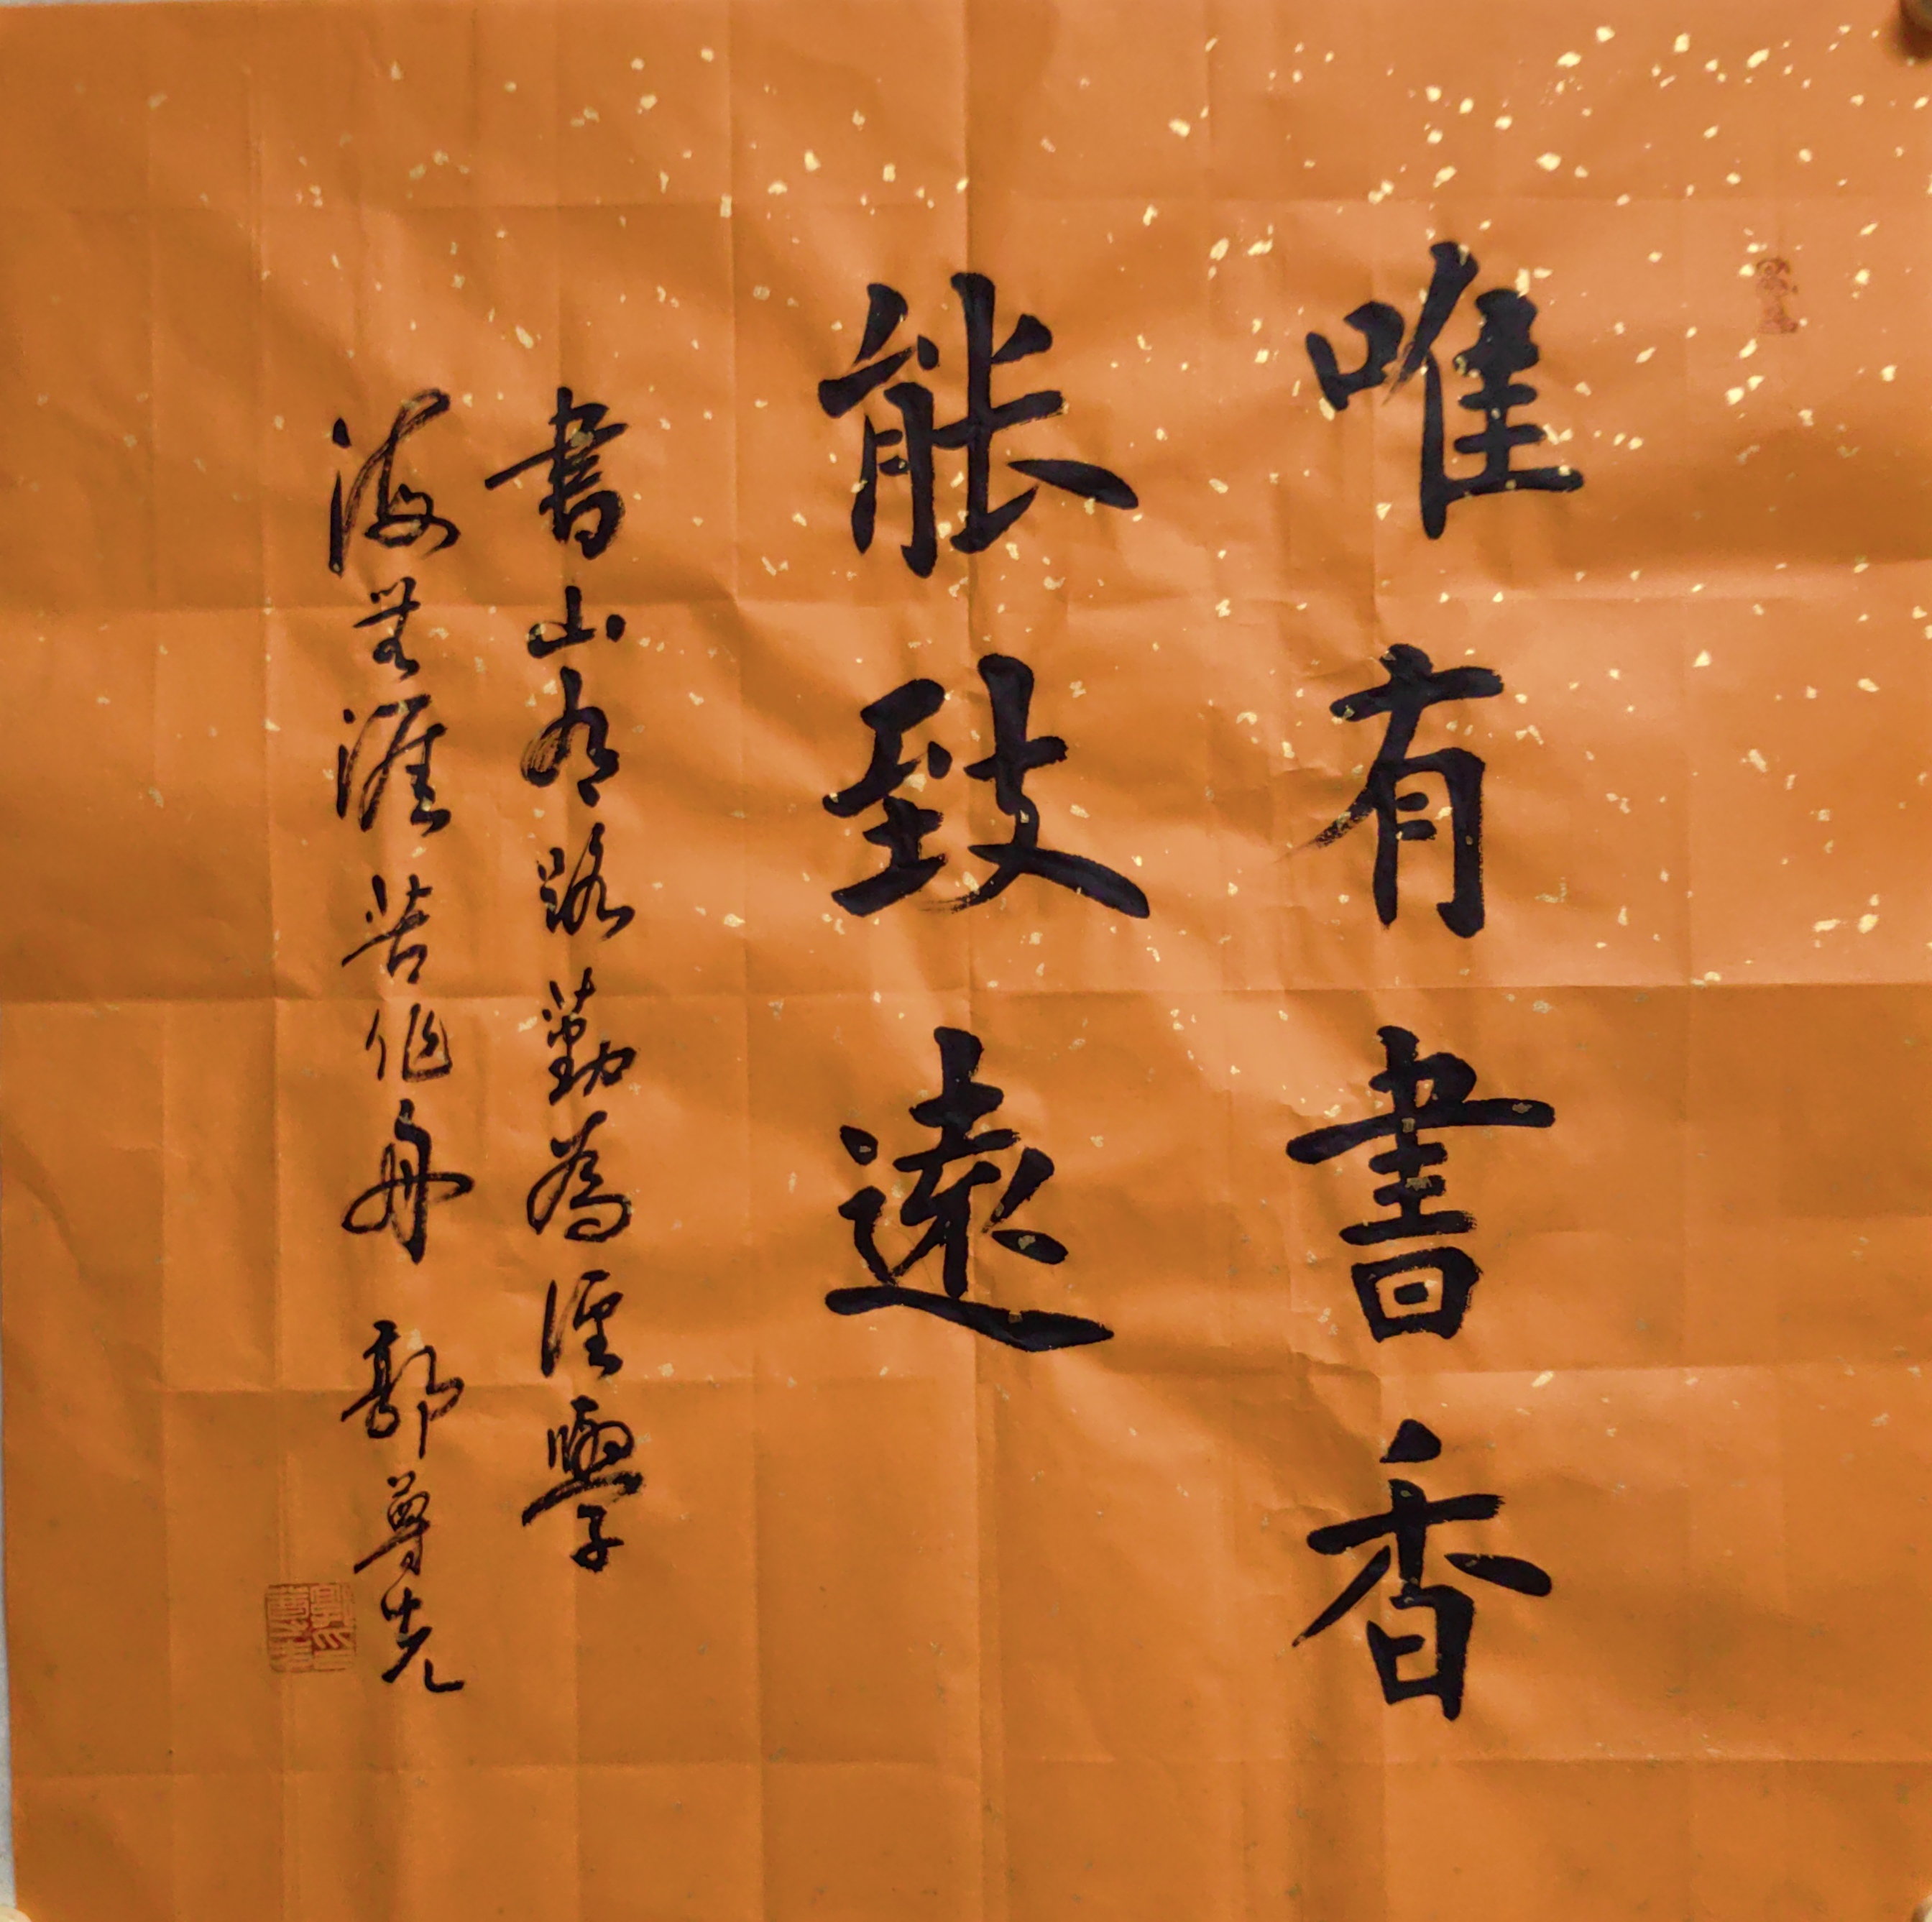 唯有書香
能致遠
書山有路勤為徑學
海無涯苦作舟 郭尊先